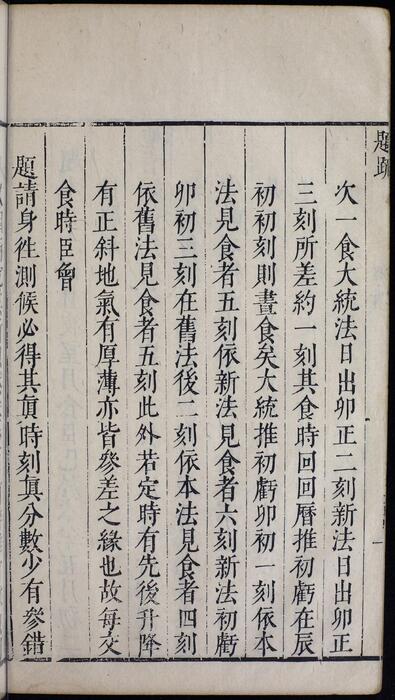 題䟽
次一食大統法日出卯正二刻新法日出卯正
三刻所差約一刻其食時回回曆推初虧在辰
初初刻則晝食矣大統推初虧卯初一刻依本
法見食者五刻依新法見食者六刻新法初虧
卯初三刻在舊法後二刻依本法見食者四刻
依舊法見食者五刻此外若定時有先後升降
有正斜地氣有厚薄亦皆參差之緣也故每交
食時臣會
題請身徃測候必得其真時刻真分數少有參錯